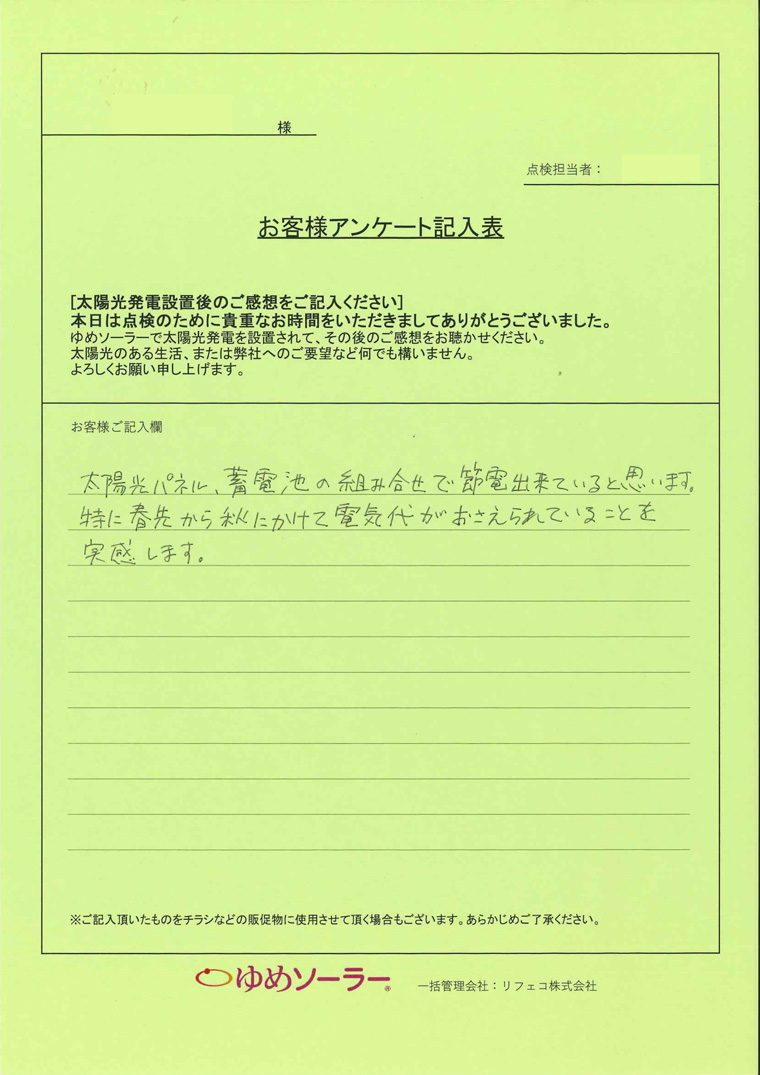 様
点検担当者：
お客様アンケート記入表
[太陽光発電設置後のご感想をご記入ください]
本日は点検のために貴重なお時間をいただきましてありがとうございました。
ゆめソーラーで太陽光発電を設置されて、その後のご感想をお聴かせください。
太陽光のある生活、または弊社へのご要望など何でも構いません。
よろしくお願い申し上げます。
お客様ご記入欄
太陽光パネル、蓄電池の組み合せで節電出来ていると思います。
特に春先から秋にかけて電気代がおさえられていることを
実感します。
※ご記入頂いたものをチラシなどの販促物に使用させて頂く場合もございます。あらかじめご了承ください。
ゆめソーラー® 一括管理会社：リフェコ株式会社